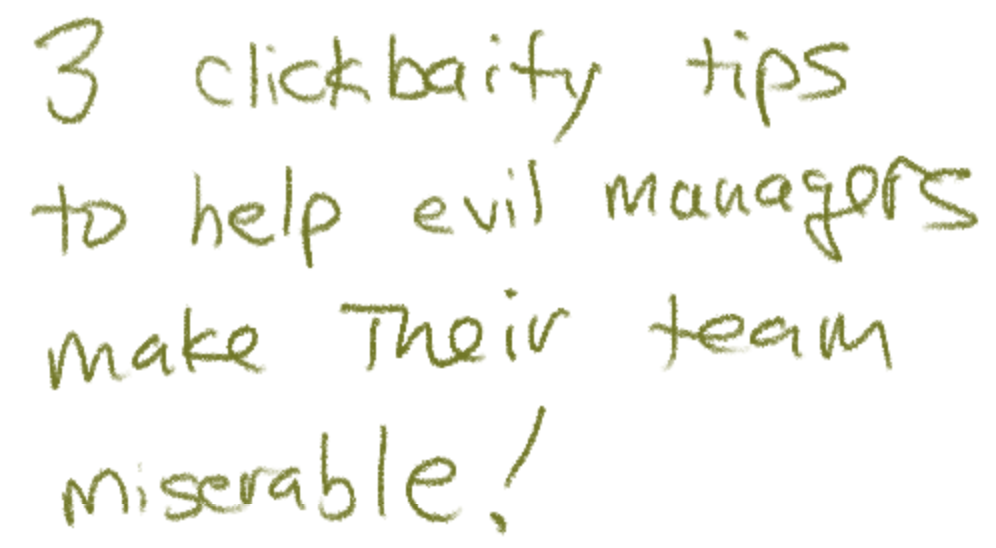 3 clickbaity tips
to help evil managers
make Their team
miserable!